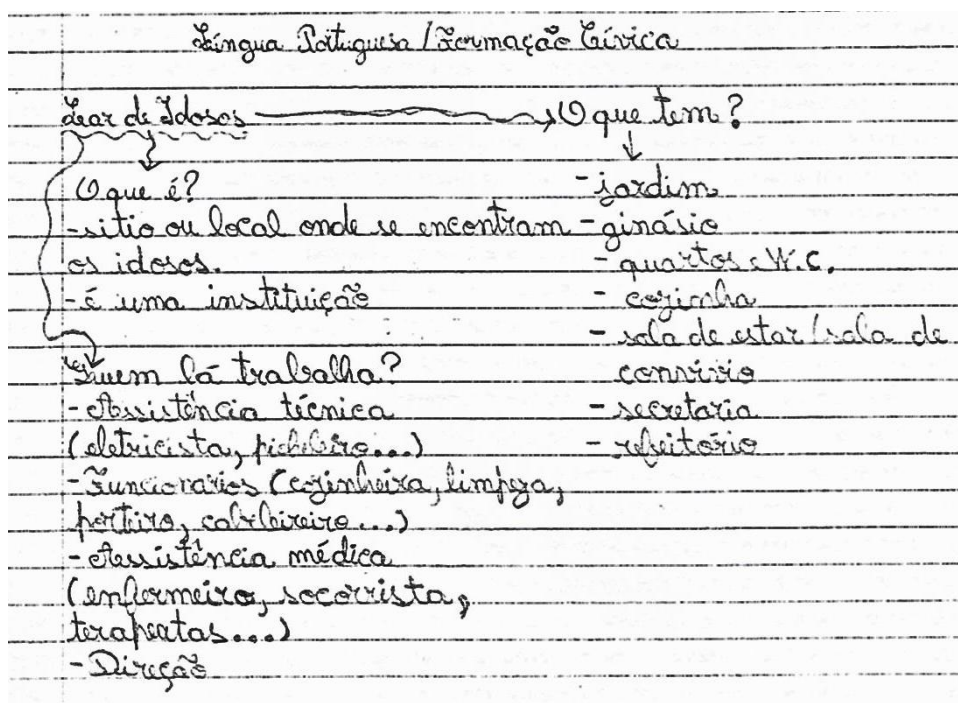 Língua Portuguesa / Formação Cívica
Lar de Idosos
O que é?
- sitio ou local onde se encontram
os idosos.
- é uma instituição
Quem lá trabalha?
- Assistência técnica
(eletricista, picheleiro...)
- Funcionarios (cozinheira, limpeza,
porteiro, cabeleireiro...)
- Assistência médica
(enfermeiro, socorrista,
terapeutas...)
- Direção
O que tem?
- jardim
- ginásio
- quartos c W.C.
- cozinha
- sala de estar / sala de
convivio
- secretaria
- refeitório